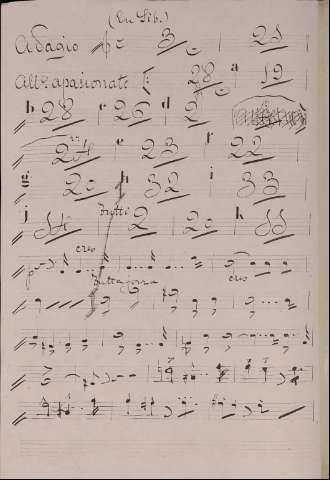 (En Sib.)
Adagio 3 21
All.º apasionato 28 a 19
b 28 c 26 d 2
24 e 23 f 22
g 20 h 32 i 33
j 54 Tutti 2 20 k 55
cres
Tutta forza cres